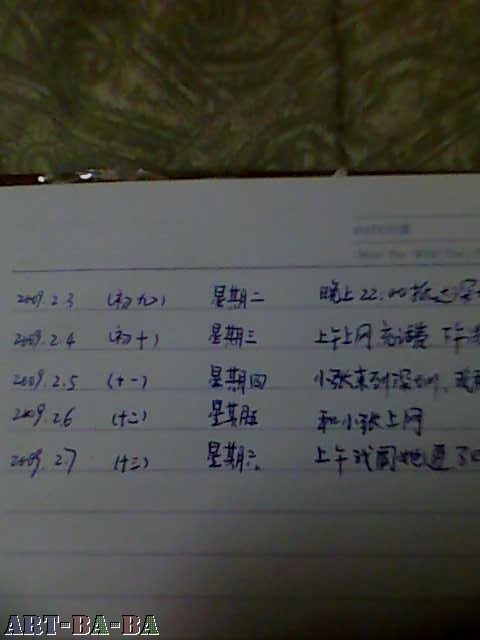 2009.2.3 (初九) 星期二 晚上22:00抵达深
2009.2.4 (初十) 星期三 上午上网 充话费 下午
2009.2.5 (十一) 星期四 小张来到深圳,我
2009.2.6 (十二) 星期五 和小张上网
2009.2.7 (十三) 星期六 上午我
ART-BA-BA